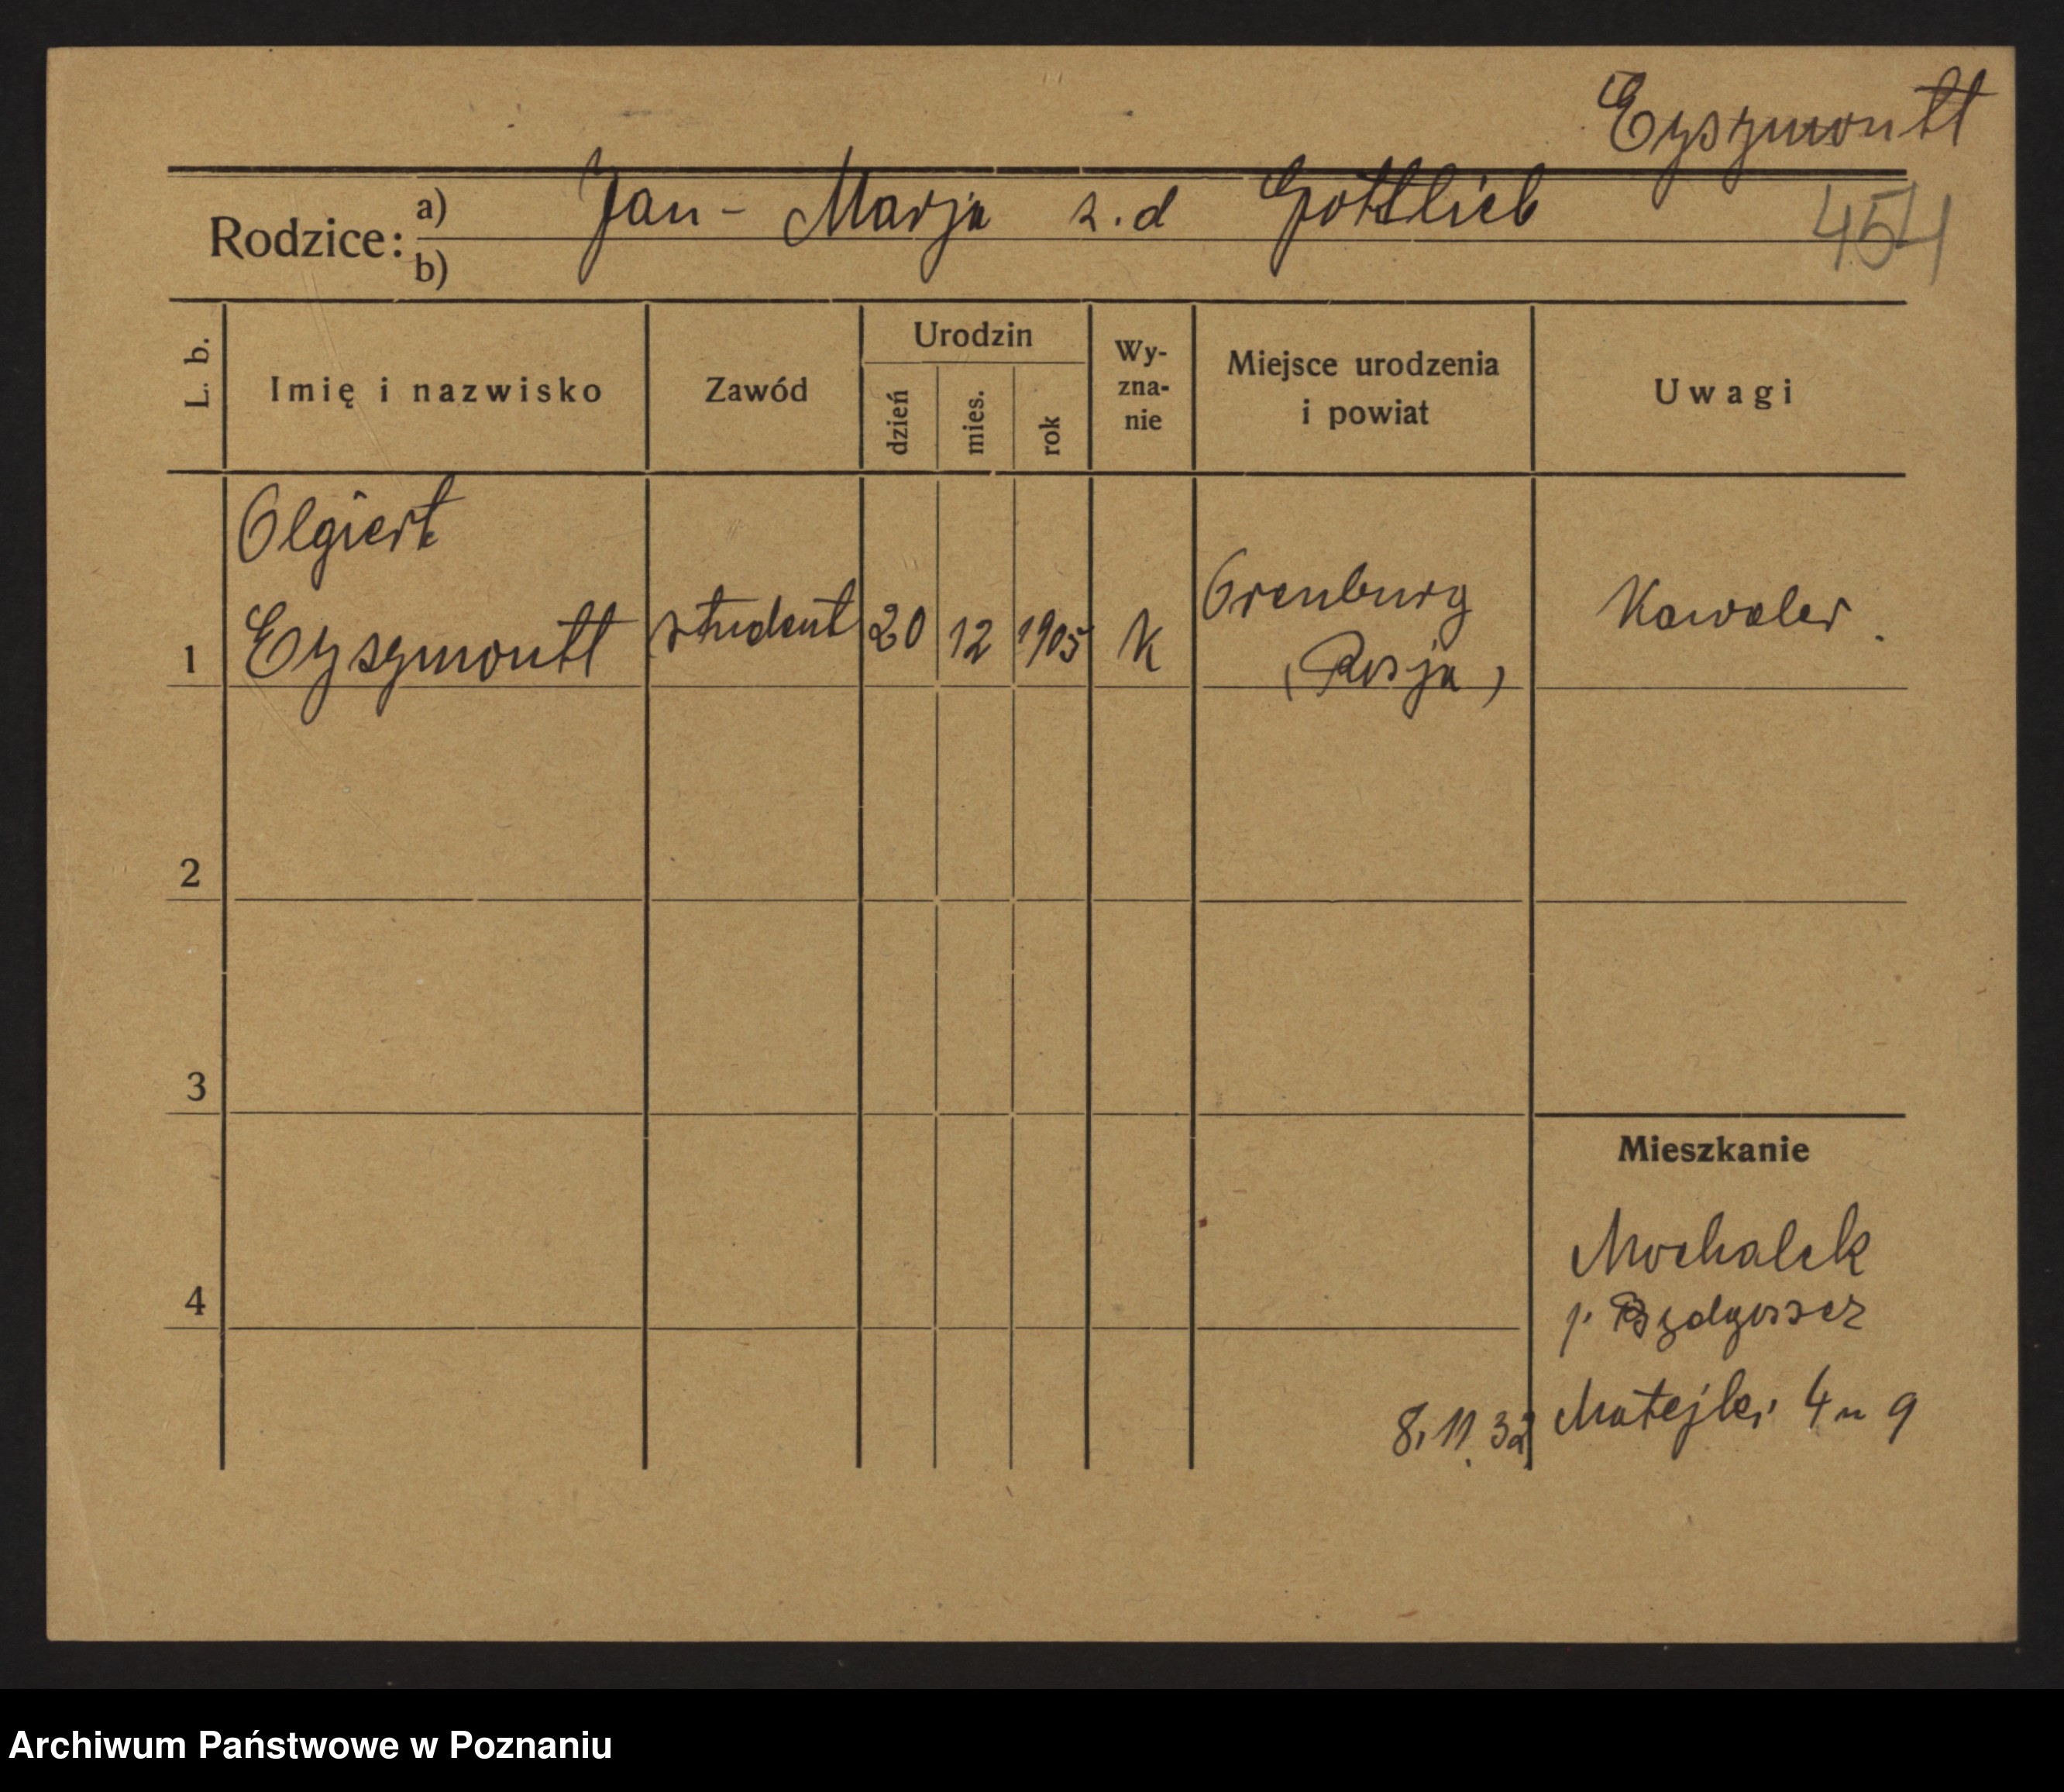 Eyszmontt
Rodzice: a) Jan - Marja z. d Gottlieb
454
b)
L. b.
Imię i nazwisko
Zawód
Urodzin
dzień
mies.
rok
Wy-
zna-
nie
Miejsce urodzenia
i powiat
Uwagi
Olgiert
1 Eyszmontt student 20 12 1905 K Orenburg Kawaler.
(Rosja)
2
3
Mieszkanie
4
p. Bydgoszcz
8.11.32 Matejki 4 m 9
Archiwum Państwowe w Poznaniu